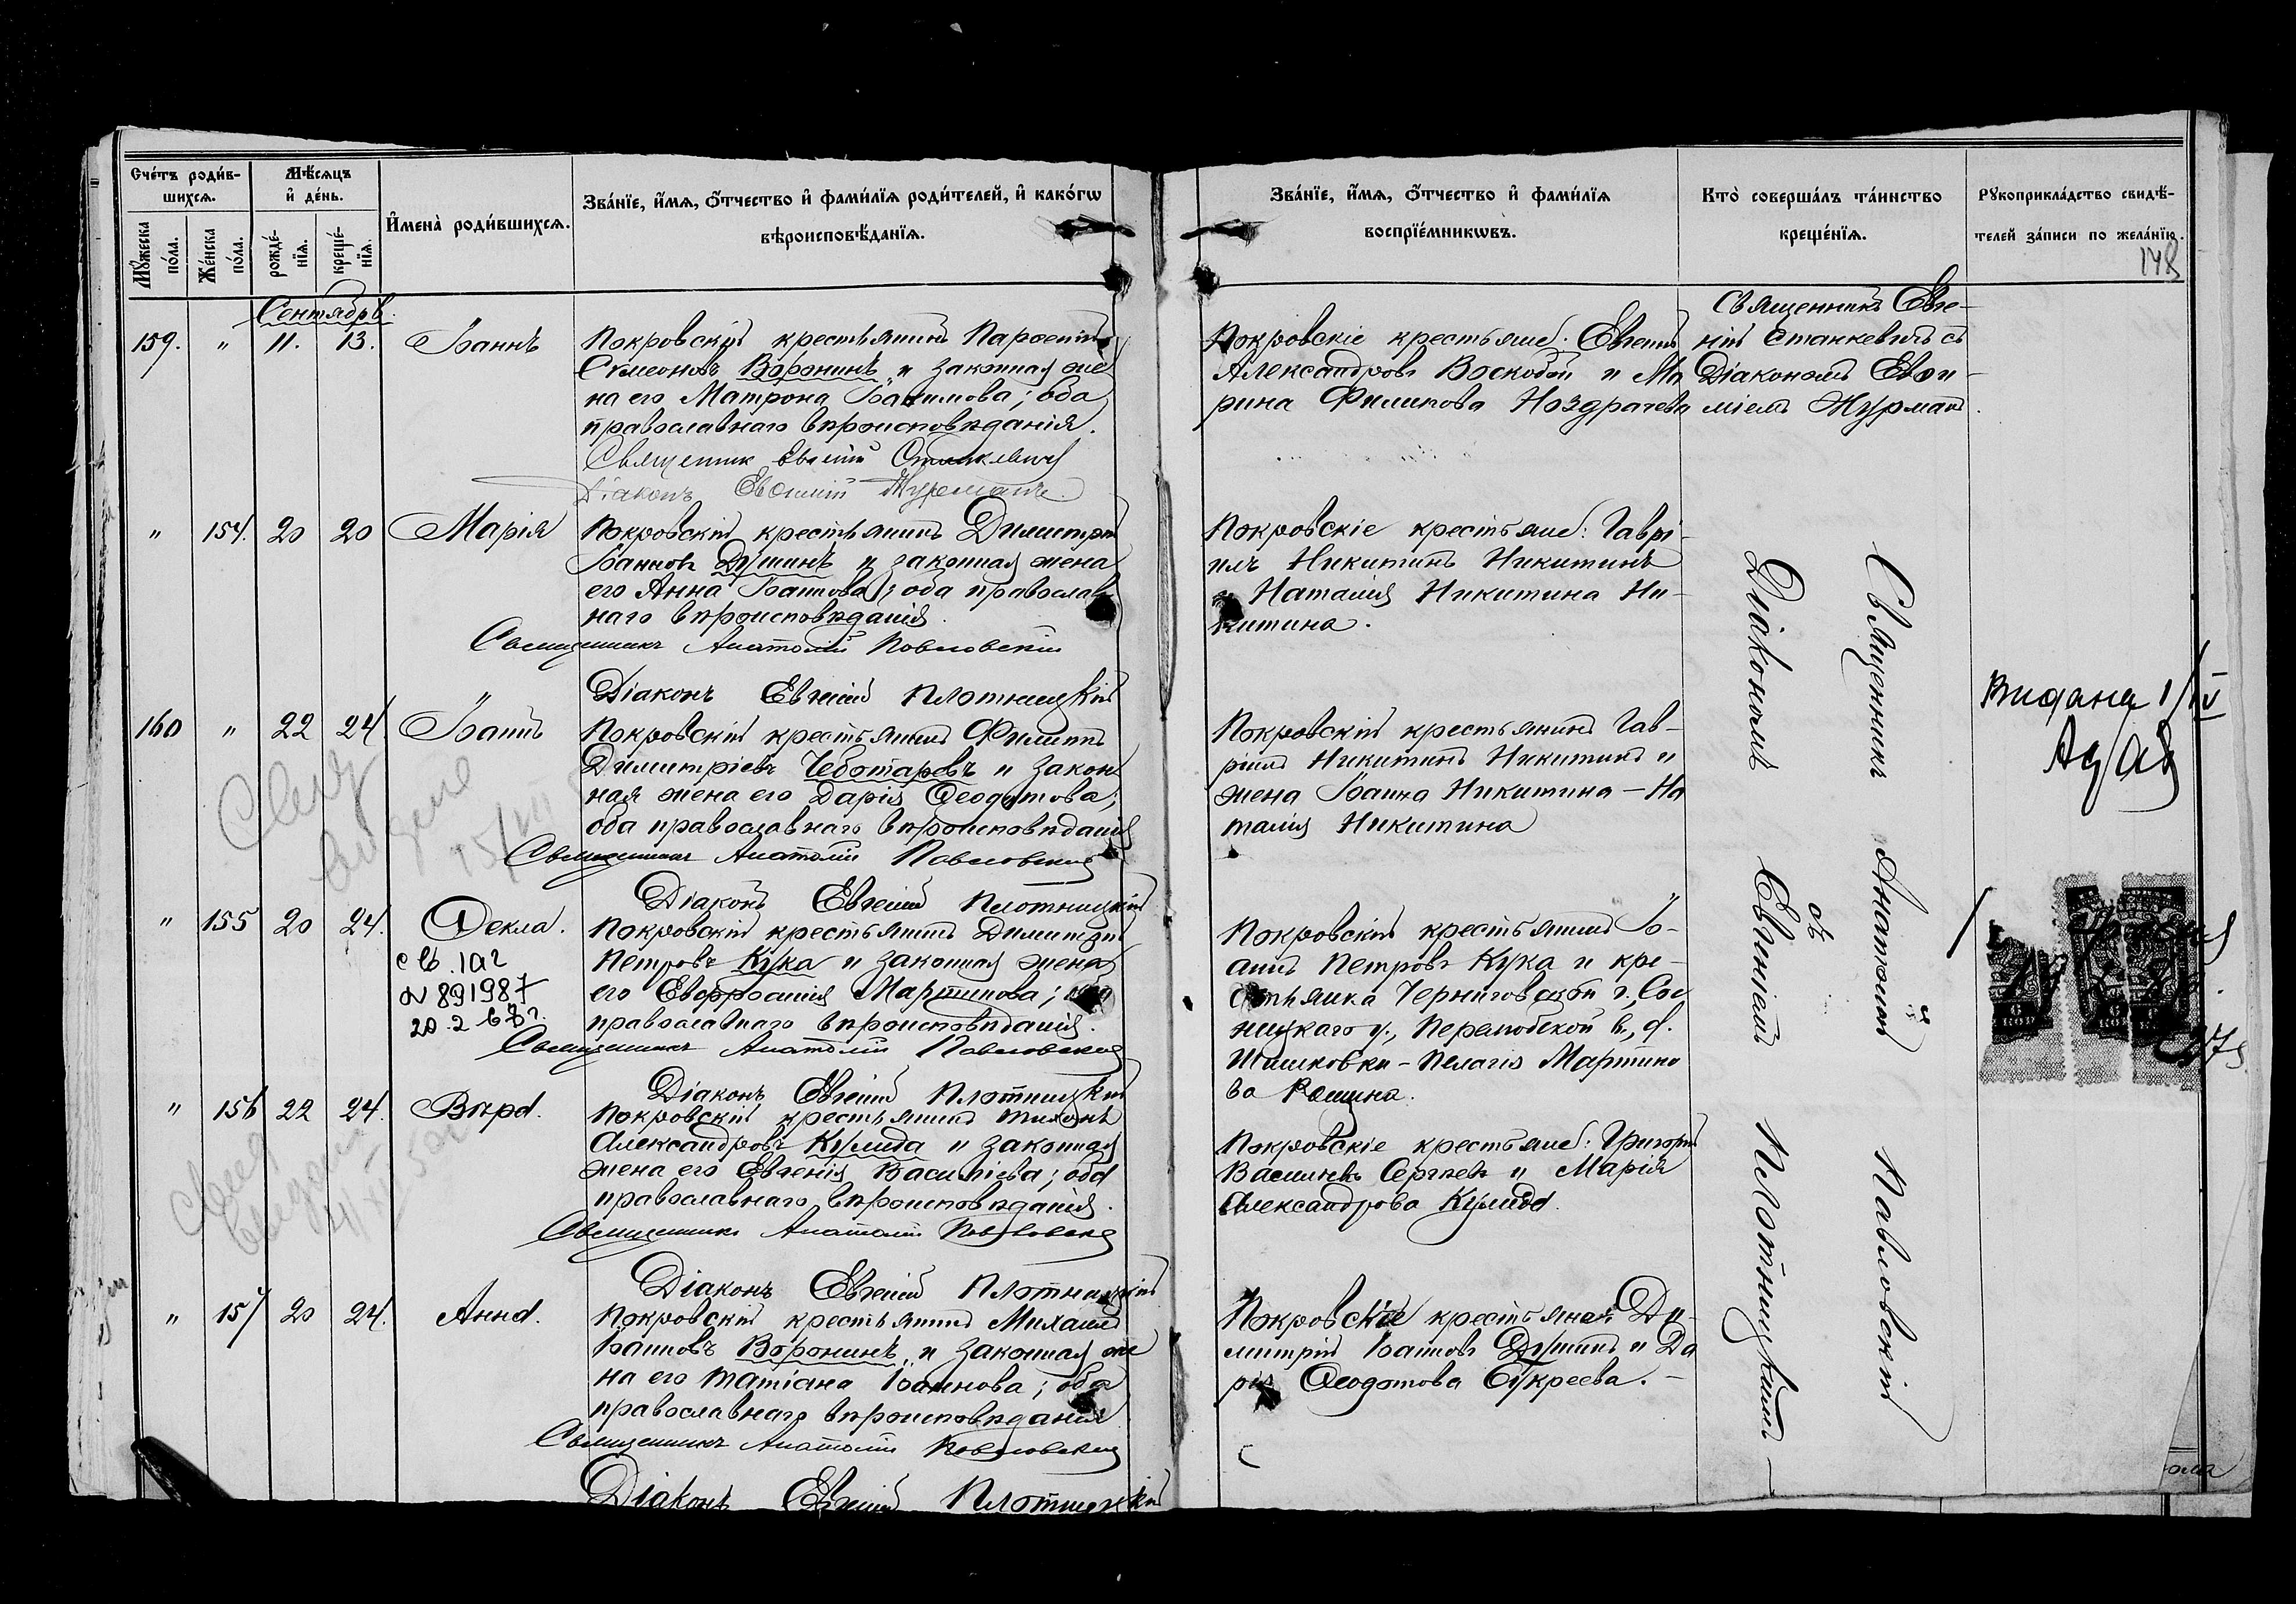 Счётъ роди́в-
шихся.
Мѣсяцъ
и̂ де́нь.
Мꙋ́жеска
по́ла.
Же́нска
по́ла.
рожде́-
нїя.
креще́-
нїя.
И҆мена̀ роди́вшихся.
Зва́нїе, и҆́мя, ѻ҆́тчество и҆ фами́лїя роди́телей, и҆ како́гѡ
вѣроисповѣ́данїя.
Зва́нїе, и҆́мя, ѻ҆́тчество и҆ фами́лїя
воспрїе́мникѡвъ.
Кто̀ соверша́лъ та́инство
креще́нїя.
Рꙋкоприкла́дство свидѣ́-
телей за́писи по жела́нїю.
148
Сентябрь.
159. " 11. 13. Іоаннъ
Покровскій крестьянинъ
Симеоновъ Воронинъ и законная же
на его Матрона; оба
православнаго вѣроисповѣданія.
Священник Евгеній Станкевич
Діаконъ Евѳимій Журманъ
Покровскіе крестьяне: Евгеній
Александровъ Воскобой и Ма
рина Филипова Ноздрачева
Священникъ Евге-
ній Станкевичъ съ
Діакономъ Евѳи-
міемъ Журман
" 154. 20 20 Марія
Покровскій крестьянинъ Димитрій
Іоанновъ Душинъ и законная жена
его Анна Іоаннова; оба православ
наго вѣроисповѣданія.
Священникъ Анатолій Павловскій
Діаконъ Евгеній Плотницкій
Покровскіе крестьяне: Гаврі-
илъ Никитинъ Никитинъ
и Наталія Никитина Ни-
китина.
160 " 22 24 Іоаннъ
Покровскій крестьянинъ Филиппъ
Димитріевъ Чеботаревъ и закон
ная жена его Дарія Ѳеодотова;
оба православнаго вѣроисповѣданія
Священникъ Анатолій Павловскій
Діаконъ Евгеній Плотницкій
Покровскій крестьянинъ Гав-
риилъ Никитинъ Никитинъ и
жена Іоанна Никитина – На
талія Никитина
15/VII
Видана 1/IV
" 155 20 24. Ѳекла.
св. 1аг
N 891987
20.2 67г.
Покровскій крестьянинъ Димитрій
Петровъ Кука и законная жена
его Евфросинія Мартинова; оба
православнаго вѣроисповѣданія.
Священникъ Анатолій Павловскій
Діаконъ Евгеній Плотницкій
Покровскій крестьянинъ Іо-
аннъ Петровъ Кука и кре-
стьянка Черниговской г., Сос
ницкаго у., в., д.
Шишковки – Пелагія Мартино
ва
" 156 22 24. Вѣра.
Покровскій крестьянинъ Тихонъ
Александровъ Кулида и законная
жена его Евгенія Василіева; оба
православнаго вѣроисповѣданія.
Священникъ Анатолій Павловскій
Діаконъ Евгеній Плотницкій
Покровскіе крестьяне: Григорій
Васильевъ Сергѣевъ и Марія
Александрова Кулида.
" 157 20 24. Анна.
Покровскій крестьянинъ Михаилъ
Іоанновъ Воронинъ, и законная же
на его Татіана Іоаннова; оба
православнаго вѣроисповѣданія
Священникъ Анатолій Павловскій
Діаконъ Евгеній Плотницкій
Покровскіе крестьяне: Ди-
митрій Іоанновъ Душинъ и Да
рія Ѳеодотова Букреева. –
Священникъ Анатолій Павловскій
съ
Діакономъ Евгеніемъ Плотницкимъ